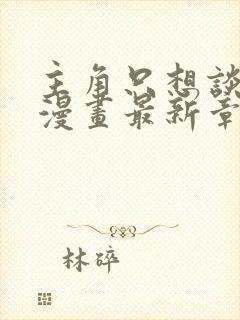 主角只想談
漫畫最新章
林碎